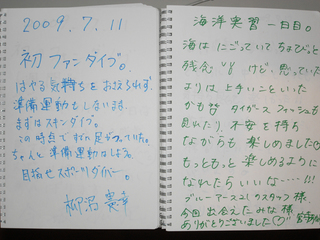 2009.7.11
初ファンダイブ。
はやる気持ちをおさえられず、
準備運動もしないまま
まずはスキンダイブ。
この時点ですでに足がつっていた。
ちゃんと準備運動はしよう。
目指せスポーツダイバー。
海洋実習一日目。
海はにごっていてちょぴっと
残念 けど、思っていた
よりは上手いこといった
かも タイガースフィッシュも
見れたり、不安を持ち
ながらも楽しめました
もっともっと楽しめるように
なれたらいいな
ブルーアース21 スタッフ様、
今回出会えたみな様
ありがとうございました